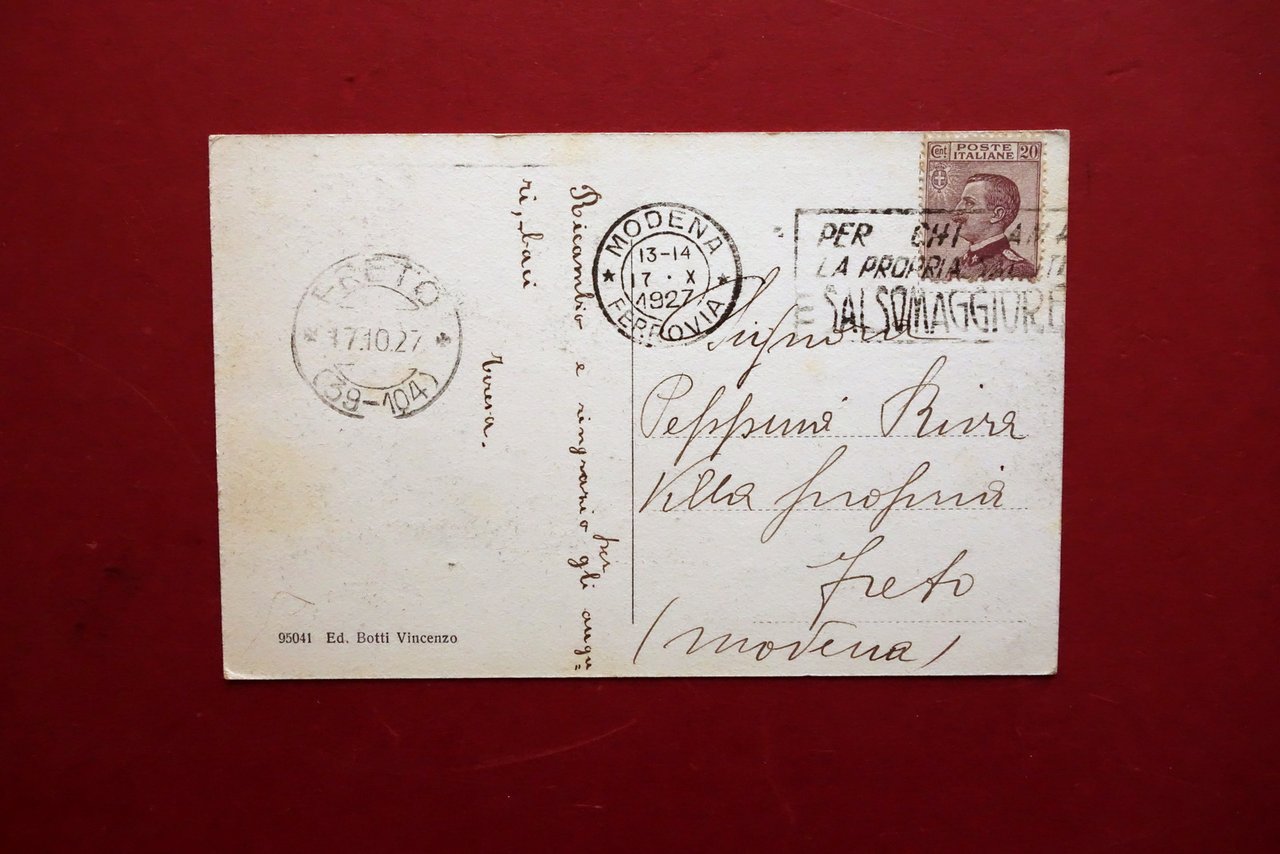 Cent POSTE 20
ITALIANE
MODENA
13-14
17 · X
1927
FERROVIA
PER CHI AMA
LA PROPRIA SALUTE
SALSOMAGGIORE
FRETO
17.10.27
(39-104)
Ricambio e ringrazio per gli augu=
ri, baci
Teresa.
Signora
Peppina Riva
Villa propria
Freto
(Modena)
95041 Ed. Botti Vincenzo